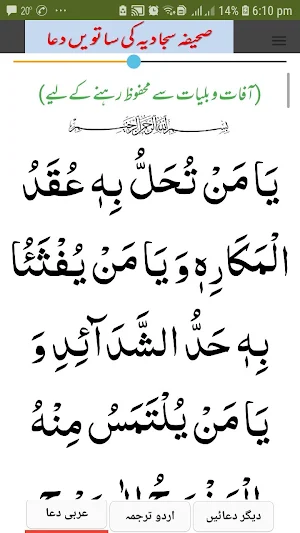 20° 14% 6:10 pm
صحیفہ سجادیہ کی ساتویں دعا
(آفات و بلیات سے محفوظ رہنے کے لیے)
بِسْمِ اللهِ الرَّحْمٰنِ الرَّحِيْمِ
يَا مَنْ تُحَلُّ بِهٖ عُقَدُ
الْمَكَارِهٖ وَ يَا مَنْ يُفْثَئُا
بِهٖ حَدُّ الشَّدَآئِدِ وَ
يَا مَنْ يُلْتَمَسُ مِنْهُ
دیگر دعائیں اردو ترجمہ عربی دعا